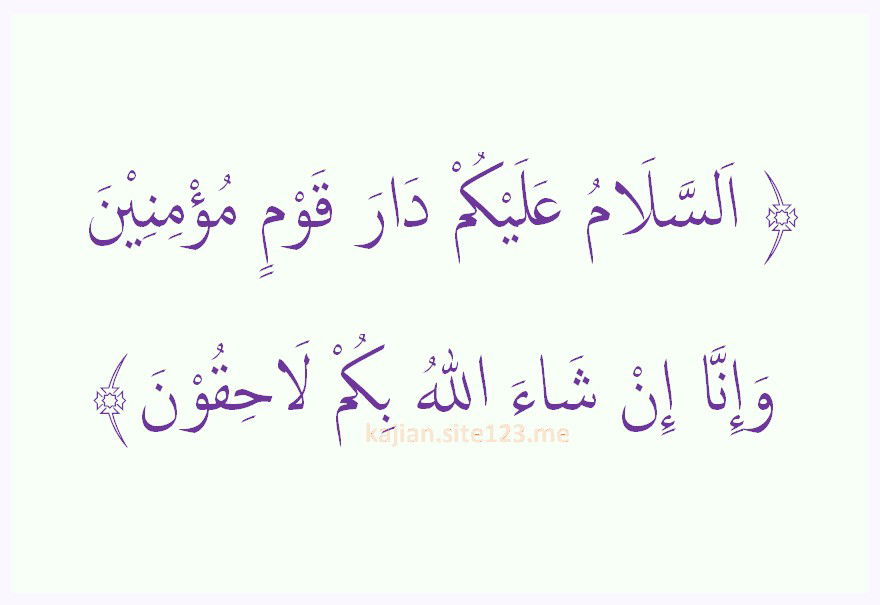 ﴿ اَلسَّلَامُ عَلَيْكُمْ دَارَ قَوْمٍ مُؤْمِنِيْنَ
وَإِنَّا إِنْ شَاءَ اللهُ بِكُمْ لَاحِقُوْنَ ﴾
kajian.site123.me